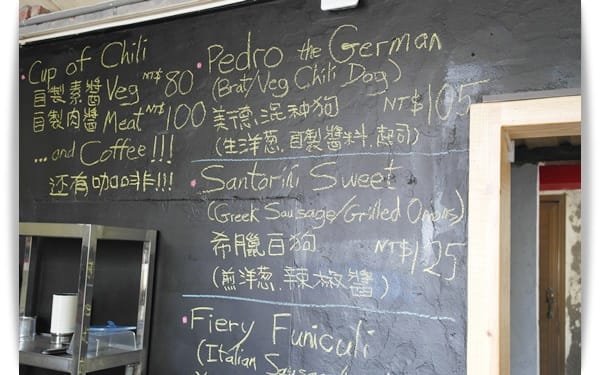 Cup of Chili
自製素醬 Veg NT$80
自製肉醬 Meat NT$100
...and Coffee!!!
还有咖啡!!!
Pedro the German
(Brat/Veg Chili Dog)
美德.混种狗 NT$105
(生洋葱.自製醬料.起司)
Santorini Sweet
(Greek Sausage/Grilled Onions)
希臘百狗 NT$125
(煎洋葱.辣椒醬)
Fiery Funiculi
(Italian Sausage